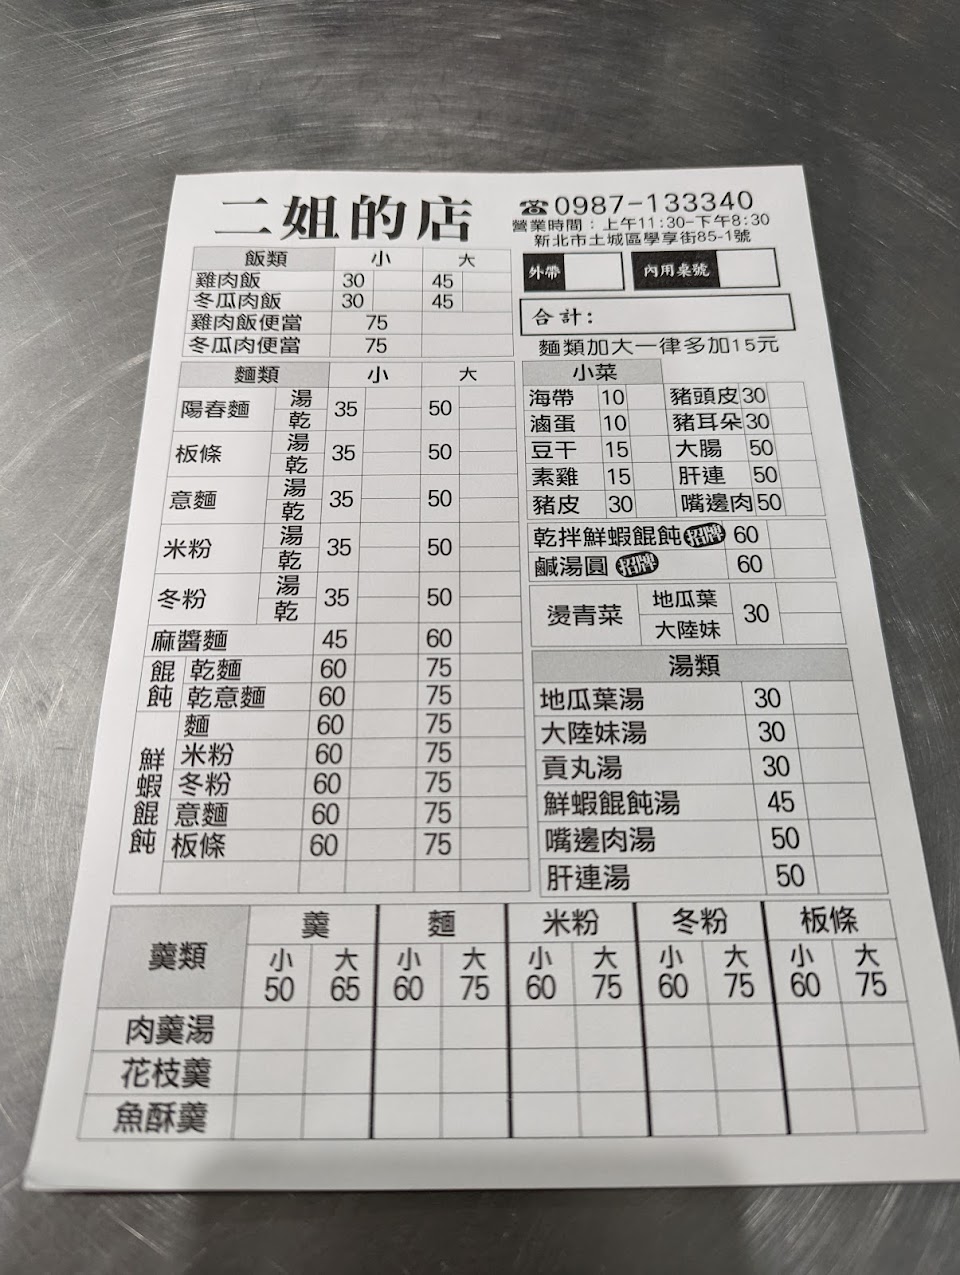 二姐的店
☎0987-133340
營業時間：上午11:30-下午8:30
新北市土城區學享街85-1號
外帶
內用桌號
合計:
麵類加大一律多加15元
飯類 小 大
雞肉飯 30 45
冬瓜肉飯 30 45
雞肉飯便當 75
冬瓜肉便當 75
麵類 小 大
陽春麵 湯 乾 35 50
板條 湯 乾 35 50
意麵 湯 乾 35 50
米粉 湯 乾 35 50
冬粉 湯 乾 35 50
麻醬麵 45 60
餛飩
乾麵 60 75
乾意麵 60 75
鮮蝦餛飩
麵 60 75
米粉 60 75
冬粉 60 75
意麵 60 75
板條 60 75
小菜
海帶 10 豬頭皮 30
滷蛋 10 豬耳朵 30
豆干 15 大腸 50
素雞 15 肝連 50
豬皮 30 嘴邊肉 50
乾拌鮮蝦餛飩 招牌 60
鹹湯圓 招牌 60
燙青菜 地瓜葉 大陸妹 30
湯類
地瓜葉湯 30
大陸妹湯 30
貢丸湯 30
鮮蝦餛飩湯 45
嘴邊肉湯 50
肝連湯 50
羹類 羹 麵 米粉 冬粉 板條
小 大 小 大 小 大 小 大 小 大
50 65 60 75 60 75 60 75 60 75
肉羹湯
花枝羹
魚酥羹